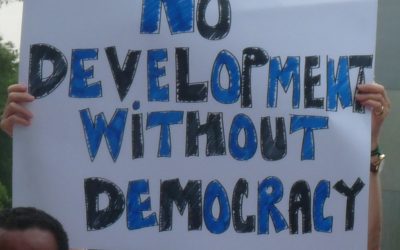 NO
DEVELOPMENT
WiTHOUT
DEMOCRACY